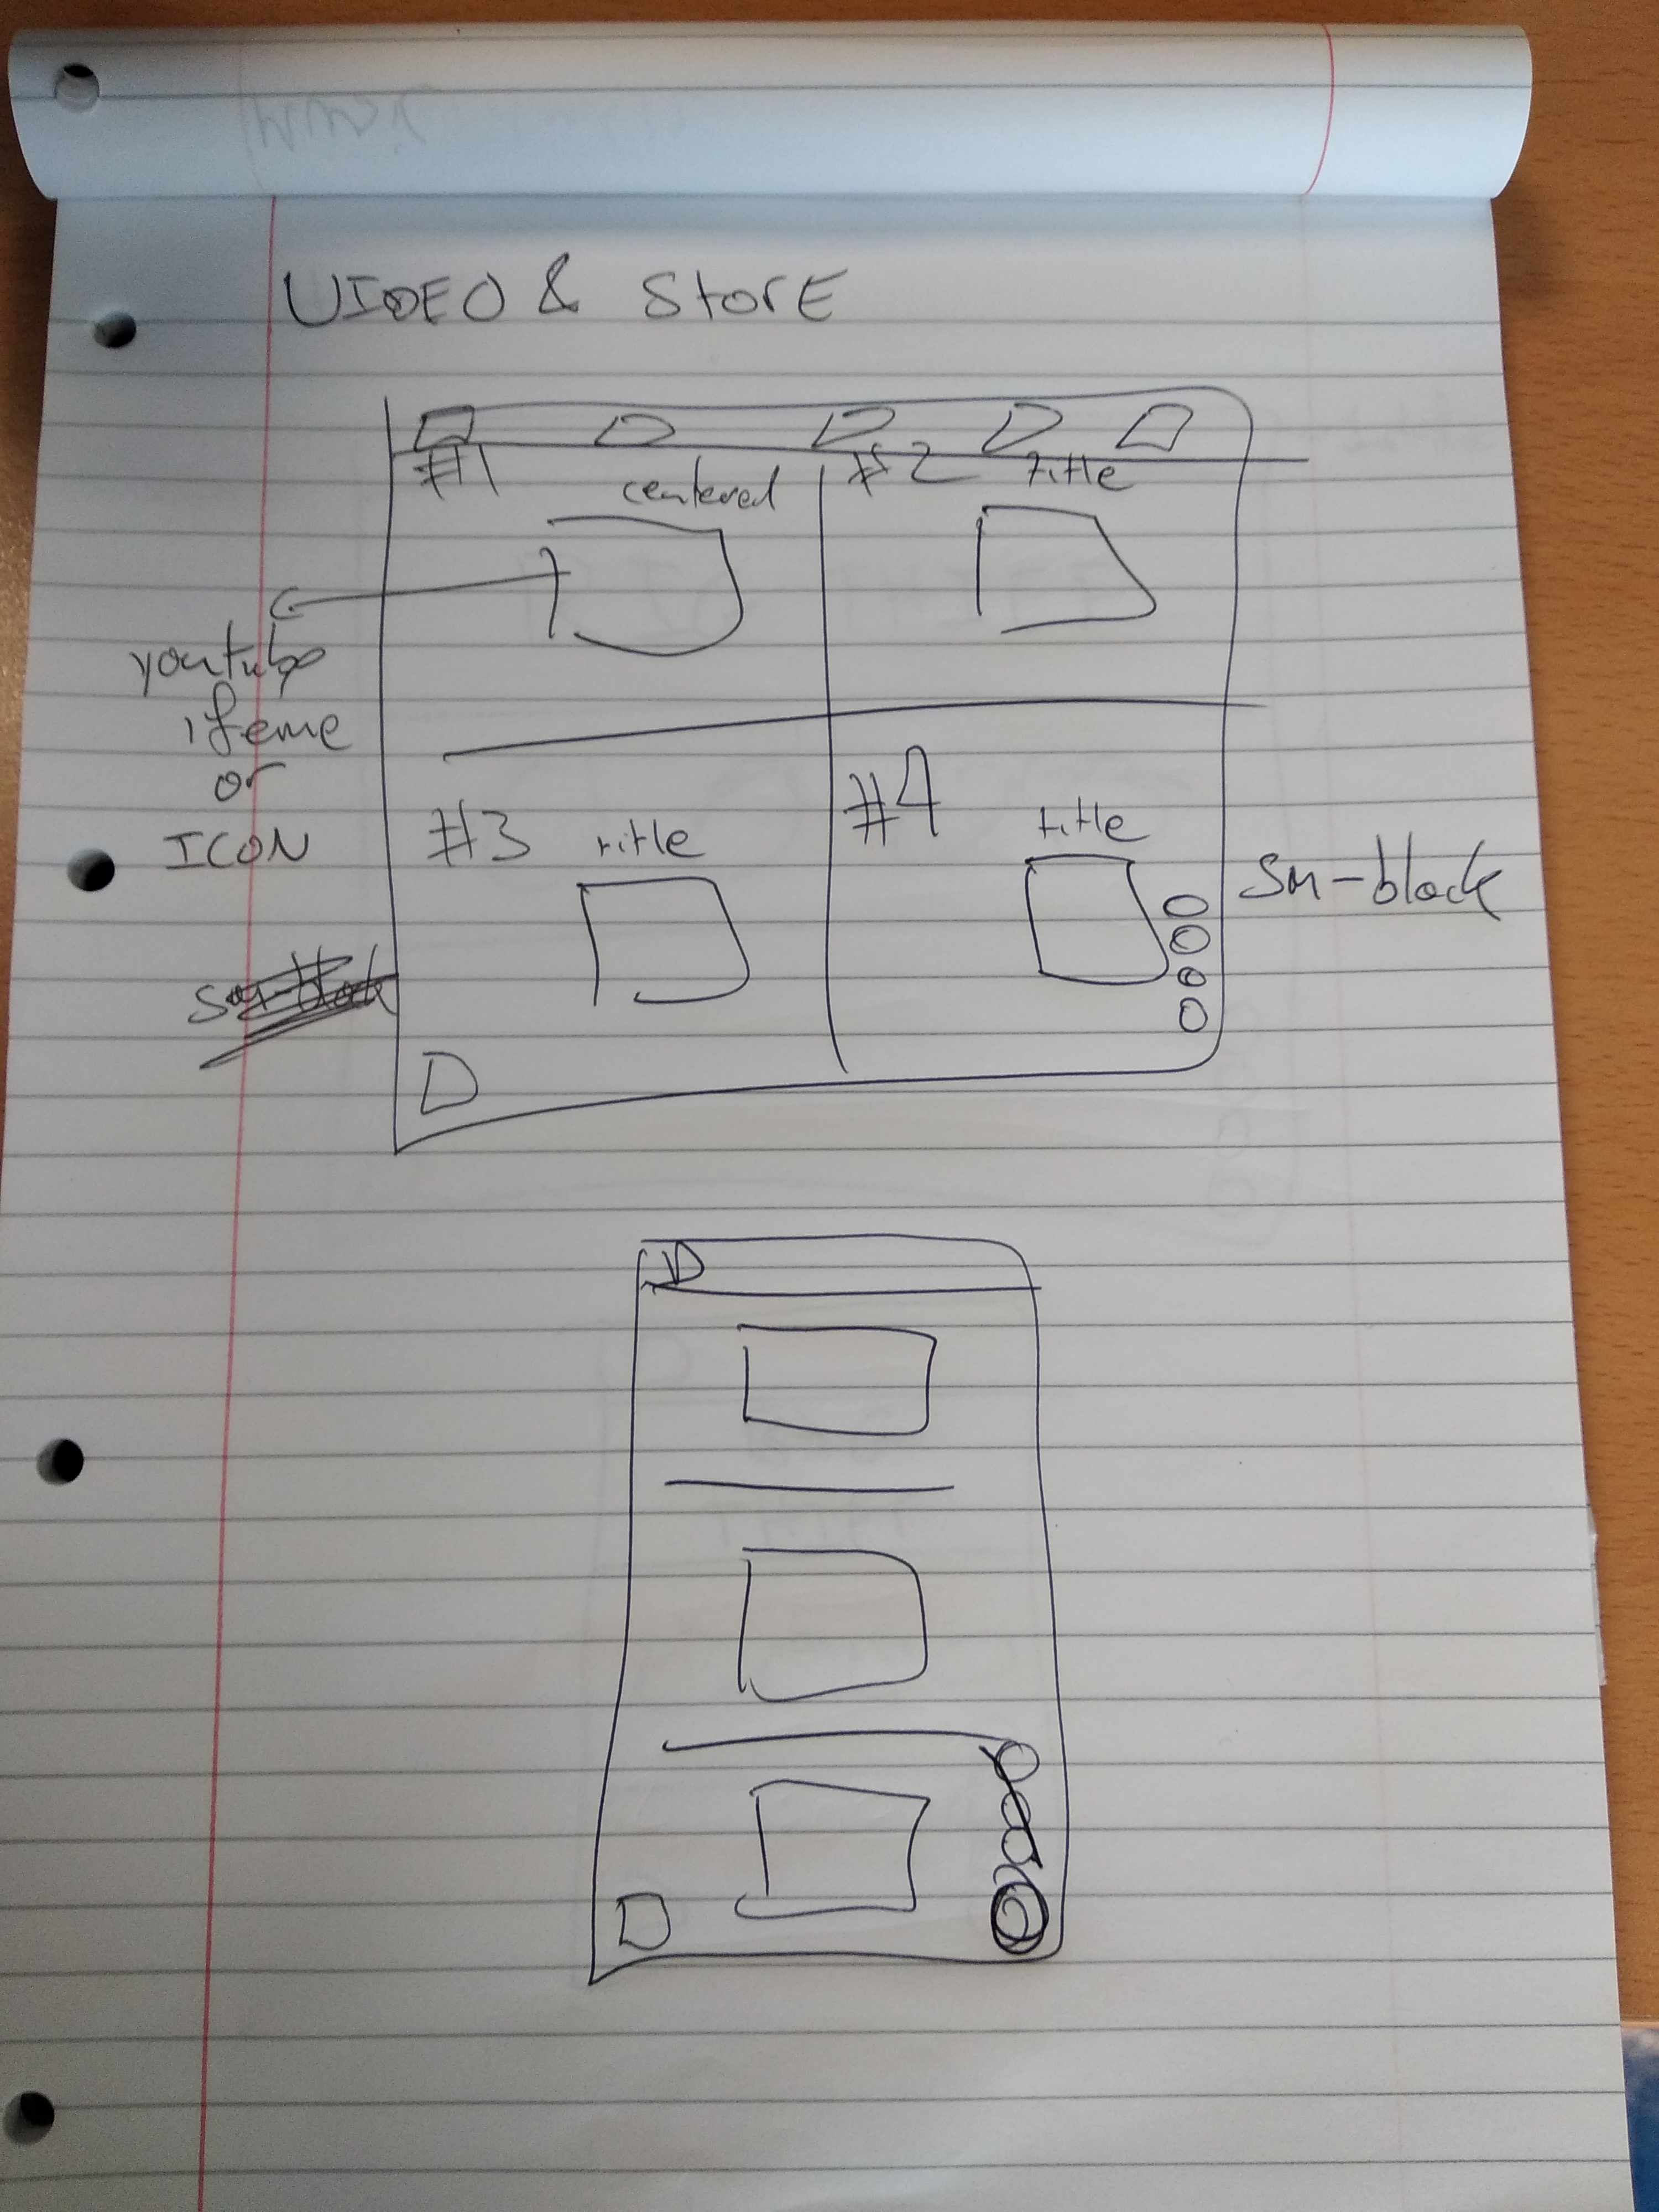 VIDEO & StorE
#1
centered
#2 title
youtube
ifeme
or
ICON
#3 title
#4
title
sm-block
sm-block